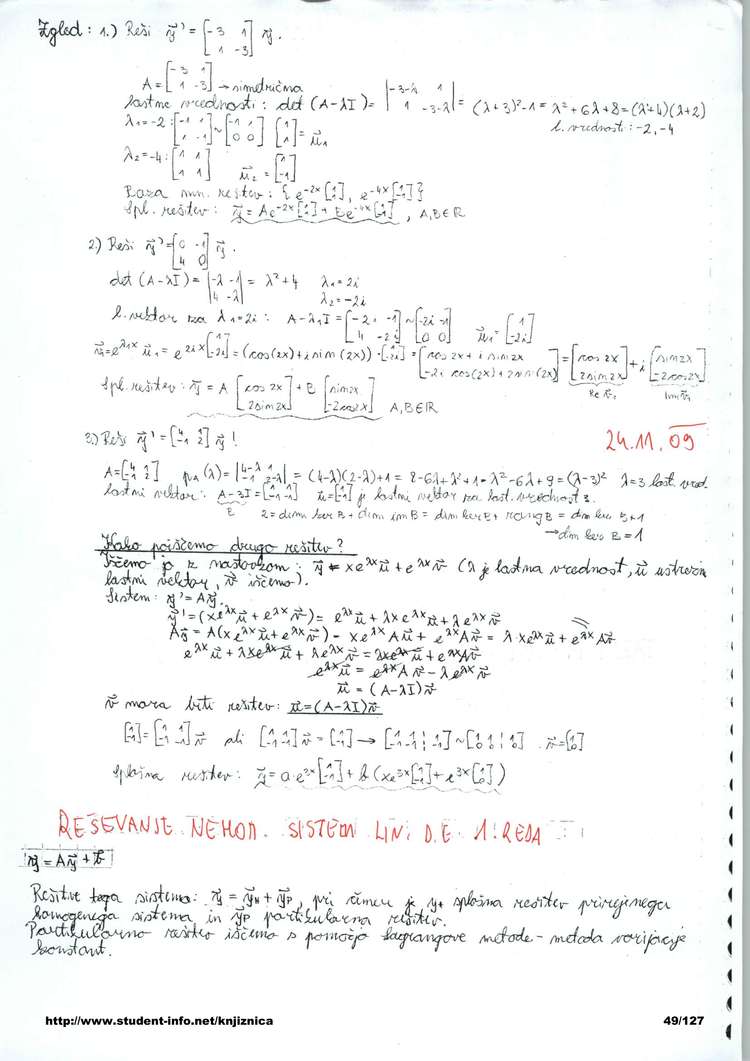 Zgled: 1.) Reši y⃗' = [-3 1; 1 -3] y⃗.
A = [-3 1; 1 -3] → simetrična
lastne vrednosti: det (A-λI) = |-3-λ 1; 1 -3-λ| = (λ+3)²-1 = λ²+6λ+8 = (λ+4)(λ+2)
l. vrednosti: -2, -4
λ₁=-2: [-1 1; 1 -1] ~ [-1 1; 0 0] [1; 1] = u⃗₁
λ₂=-4: [1 1; 1 1] u⃗₂ = [1; -1]
Baza mn. rešitev: { e^-2x [1; 1], e^-4x [1; -1] }
Spl. rešitev: y⃗ = A e^-2x [1; 1] + B e^-4x [1; -1], A,B∈R
2.) Reši y⃗' = [0 -1; 4 0] y⃗.
det (A-λI) = |-λ -1; 4 -λ| = λ²+4 λ₁=2i
λ₂=-2i
l. vektor za λ₁=2i: A-λ₁I = [-2i -1; 4 -2i] ~ [-2i -1; 0 0] u⃗₁ = [1; -2i]
y⃗₁ = e^λ₁x u⃗₁ = e^2ix [1; -2i] = (cos(2x)+i sin(2x)) · [1; -2i] = [cos 2x + i sin 2x; -2i cos(2x) + 2 sin(2x)] = [cos 2x; 2 sin 2x] + i [sin 2x; -2 cos 2x]
Re y⃗₁ Im y⃗₁
Spl. rešitev: y⃗ = A [cos 2x; 2 sin 2x] + B [sin 2x; -2 cos 2x] A,B∈R
24.11.09
3.) Reši y⃗' = [4 1; -1 2] y⃗!
A = [4 1; -1 2] p_A(λ) = |4-λ 1; -1 2-λ| = (4-λ)(2-λ)+1 = 8-6λ+λ²+1 = λ²-6λ+9 = (λ-3)² λ=3 last. vred.
lastni vektor: A-3I = [1 1; -1 -1] u⃗ = [1; -1] je lastni vektor za last. vrednost 3.
B 2 = dim ker B + dim im B = dim ker B + rang B = dim ker B + 1
→ dim ker B = 1
Kako poiščemo drugo rešitev?
Iščemo jo z nastavkom: y⃗ = x e^λx u⃗ + e^λx v⃗ (λ je lastna vrednost, u⃗ ustrezni
lastni vektor, v⃗ iščemo).
Sistem: y⃗' = A y⃗.
y⃗' = (x e^λx u⃗ + e^λx v⃗)' = e^λx u⃗ + λx e^λx u⃗ + λ e^λx v⃗
A y⃗ = A(x e^λx u⃗ + e^λx v⃗) = x e^λx A u⃗ + e^λx A v⃗ = λ x e^λx u⃗ + e^λx A v⃗
e^λx u⃗ + λx e^λx u⃗ + λ e^λx v⃗ = λx e^λx u⃗ + e^λx A v⃗
e^λx u⃗ = e^λx A v⃗ - λ e^λx v⃗
u⃗ = (A-λI) v⃗
v⃗ mora biti rešitev: u⃗ = (A-λI) v⃗
[1; -1] = [1 1; -1 -1] v⃗ ali [1 1; -1 -1] v⃗ = [1; -1] → [1 1 | 1; -1 -1 | -1] ~ [1 1 | 1; 0 0 | 0] v⃗ = [1; 0]
Splošna rešitev: y⃗ = a·e^3x [1; -1] + b (x e^3x [1; -1] + e^3x [1; 0])
REŠEVANJE NEHOM. SISTEM LIN. D.E. 1. REDA
y⃗' = A y⃗ + b⃗
Rešitve tega sistema: y⃗ = y⃗_H + y⃗_P, pri čimer je y_H splošna rešitev prirejenega
homogenega sistema in y⃗_P partikularna rešitev.
Partikularno rešitev iščemo s pomočjo Lagrangove metode - metoda variacije
konstant.
http://www.student-info.net/knjiznica
49/127